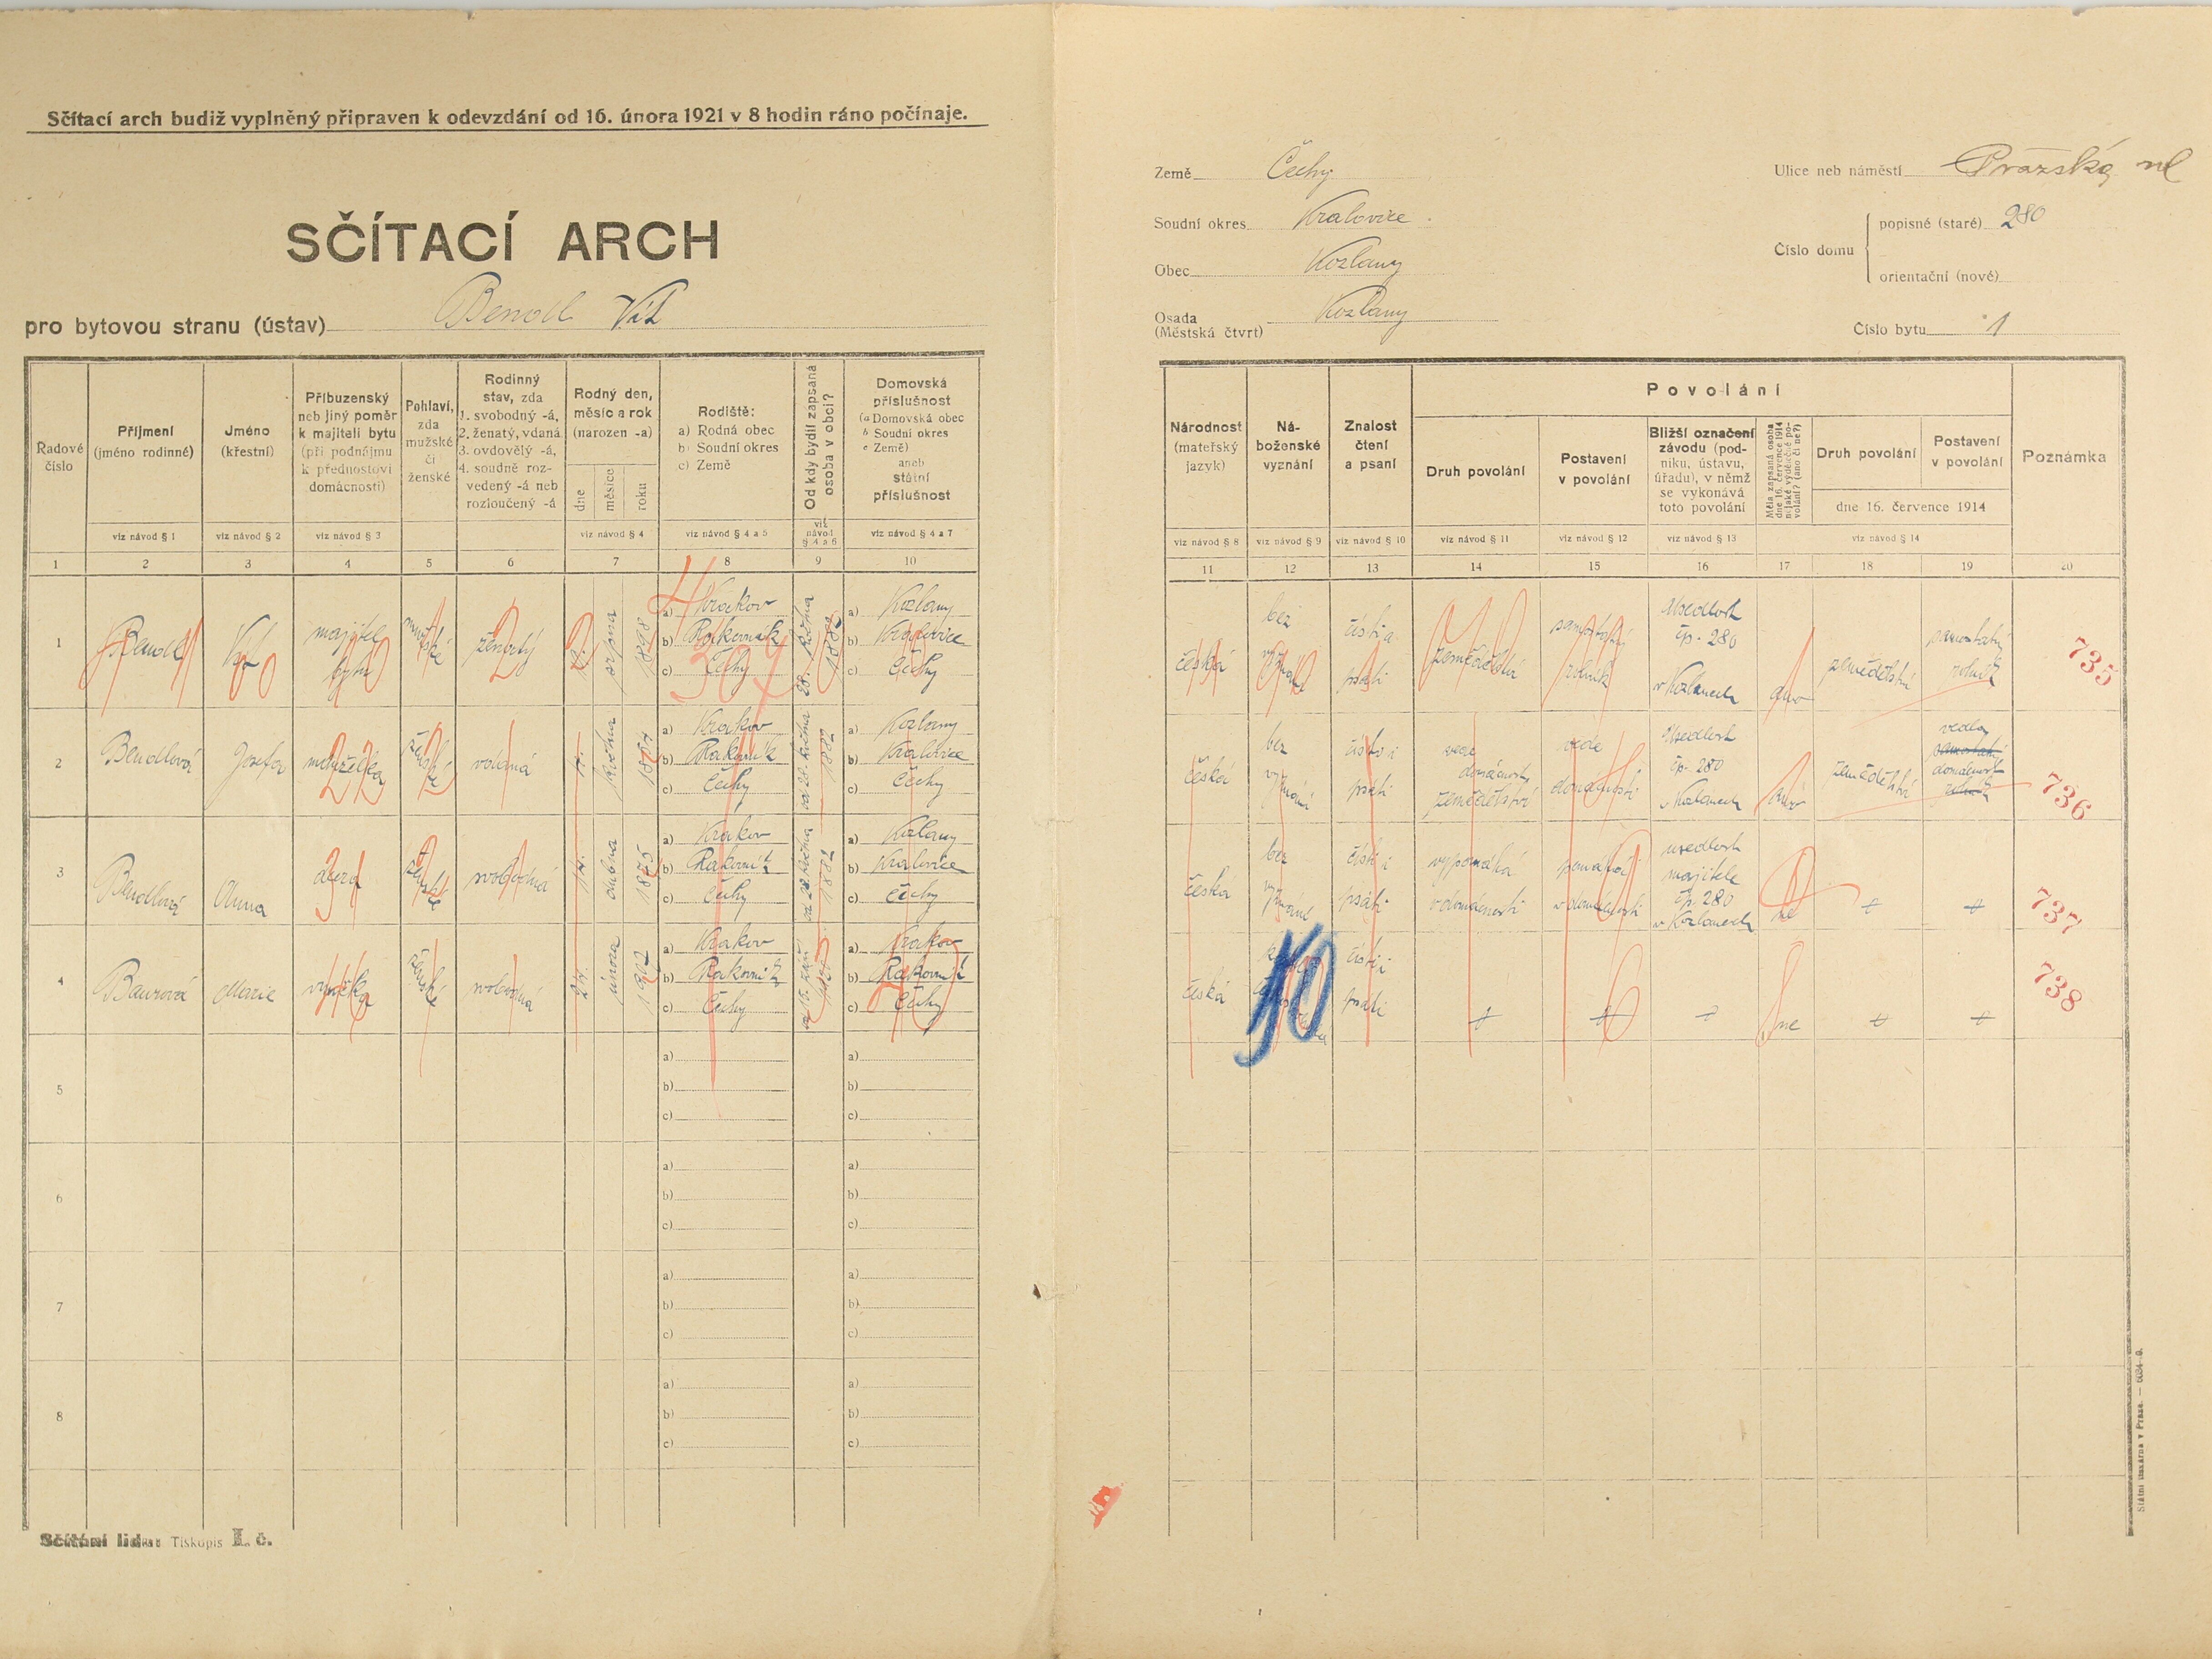 Sčítací arch budiž vyplněný připraven k odevzdání od 16. února 1921 v 8 hodin ráno počínaje.
SČÍTACÍ ARCH
pro bytovou stranu (ústav) Bendl Vít
Země Čechy
Soudní okres Kralovice
Obec Kožlany
Osada Kožlany
(Městská čtvrť)
Ulice neb náměstí Pražská ul
Číslo domu
popisné (staré) 280
orientační (nové)
Číslo bytu 1
Řadové číslo
Příjmení (jméno rodinné)
Jméno (křestní)
Příbuzenský neb jiný poměr k majiteli bytu (při podnájmu k přednostovi domácnosti)
Pohlaví, zda mužské či ženské
Rodinný stav, zda 1. svobodný -á, 2. ženatý, vdaná 3. ovdovělý -á, 4. soudně rozvedený -á neb rozloučený -á
Rodný den, měsíc a rok (narozen -a)
dne
měsíce
roku
Rodiště:
a) Rodná obec
b) Soudní okres
c) Země
Od kdy bydlí zapsaná osoba v obci?
Domovská příslušnost
(a Domovská obec
b Soudní okres
c Země)
aneb
státní příslušnost
viz návod § 1
viz návod § 2
viz návod § 3
viz návod § 4
viz návod § 4 a 5
viz návod § 4 a 6
viz návod § 4 a 7
1 2 3 4 5 6 7 8 9 10
Národnost (mateřský jazyk)
Náboženské vyznání
Znalost čtení a psaní
Povolání
Druh povolání
Postavení v povolání
Bližší označení závodu (podniku, ústavu, úřadu), v němž se vykonává toto povolání
Měla zapsaná osoba dne 16. července 1914 nějaké výdělečné povolání? (ano či ne?)
Druh povolání
Postavení v povolání
dne 16. července 1914
Poznámka
viz návod § 8
viz návod § 9
viz návod § 10
viz návod § 11
viz návod § 12
viz návod § 13
viz návod § 14
11 12 13 14 15 16 17 18 19 20
1 Bendl Vít majitel bytu mužské ženatý srpna
a) Krakov
b) Rakovník
c) Čechy
28. května 1882
a) Kožlany
b) Kralovice
c) Čechy
česká bez vyznání čísti a psáti zemědělství samostatný rolník
Usedlost čp. 280 v Kožlanech
ano zemědělství samostatný rolník
735
2 Bendlová Josefa manželka ženské vdaná května
a) Krakov
b) Rakovník
c) Čechy
od 28. května 1882
a) Kožlany
b) Kralovice
c) Čechy
česká bez vyznání čísti i psáti
vede domácnost zemědělství
vede domácnost
Usedlost čp. 280 v Kožlanech
ano zemědělství
vedla samostatně domácnost
736
3 Bendlová Anna dcera ženské svobodná 14. dubna 1875
a) Krakov
b) Rakovník
c) Čechy
od 28. května 1882
a) Kožlany
b) Kralovice
c) Čechy
česká bez vyznání čísti i psáti
vypomáhá v domácnosti
pomáhá v domácnosti
usedlost majitele čp. 280 v Kožlanech
ne
737
4 Baurová Marie vnučka ženské svobodná 24. února 1902
a) Krakov
b) Rakovník
c) Čechy
od 15. září
a) Krakov
b) Rakovník
c) Čechy
česká
10
čísti i psáti
ne
738
5
a)
b)
c)
a)
b)
c)
6
a)
b)
c)
a)
b)
c)
7
a)
b)
c)
a)
b)
c)
8
a)
b)
c)
a)
b)
c)
Sčítání lidu: Tiskopis I. č.
Státní tiskárna v Praze.